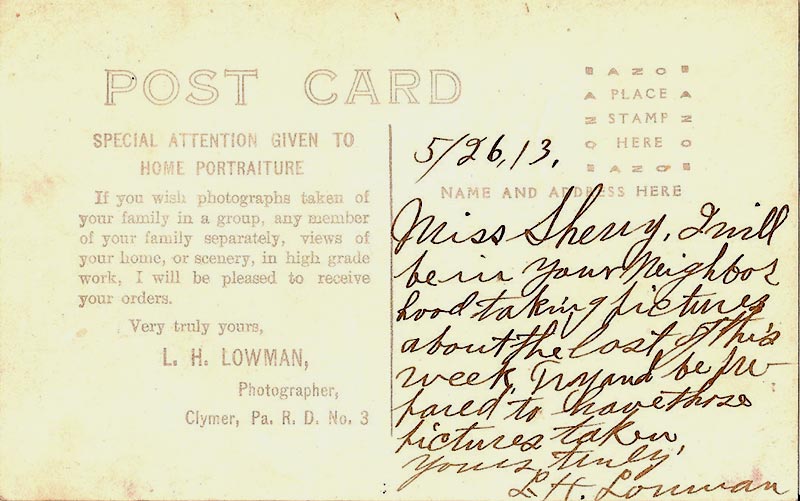 POST CARD
AZO
PLACE
STAMP
HERE
AZO
SPECIAL ATTENTION GIVEN TO
HOME PORTRAITURE
If you wish photographs taken of
your family in a group, any member
of your family separately, views of
your home, or scenery, in high grade
work, I will be pleased to receive
your orders.
Very truly yours,
L. H. LOWMAN,
Photographer,
Clymer, Pa. R. D. No. 3
5/26,13.
NAME AND ADDRESS HERE
Miss Sherry, I will
be in your Neighbor
hood taking pictures
about the last of this
week, Try and be pre-
pared to have those
pictures taken,
yours, truly,
L.H. Lowman